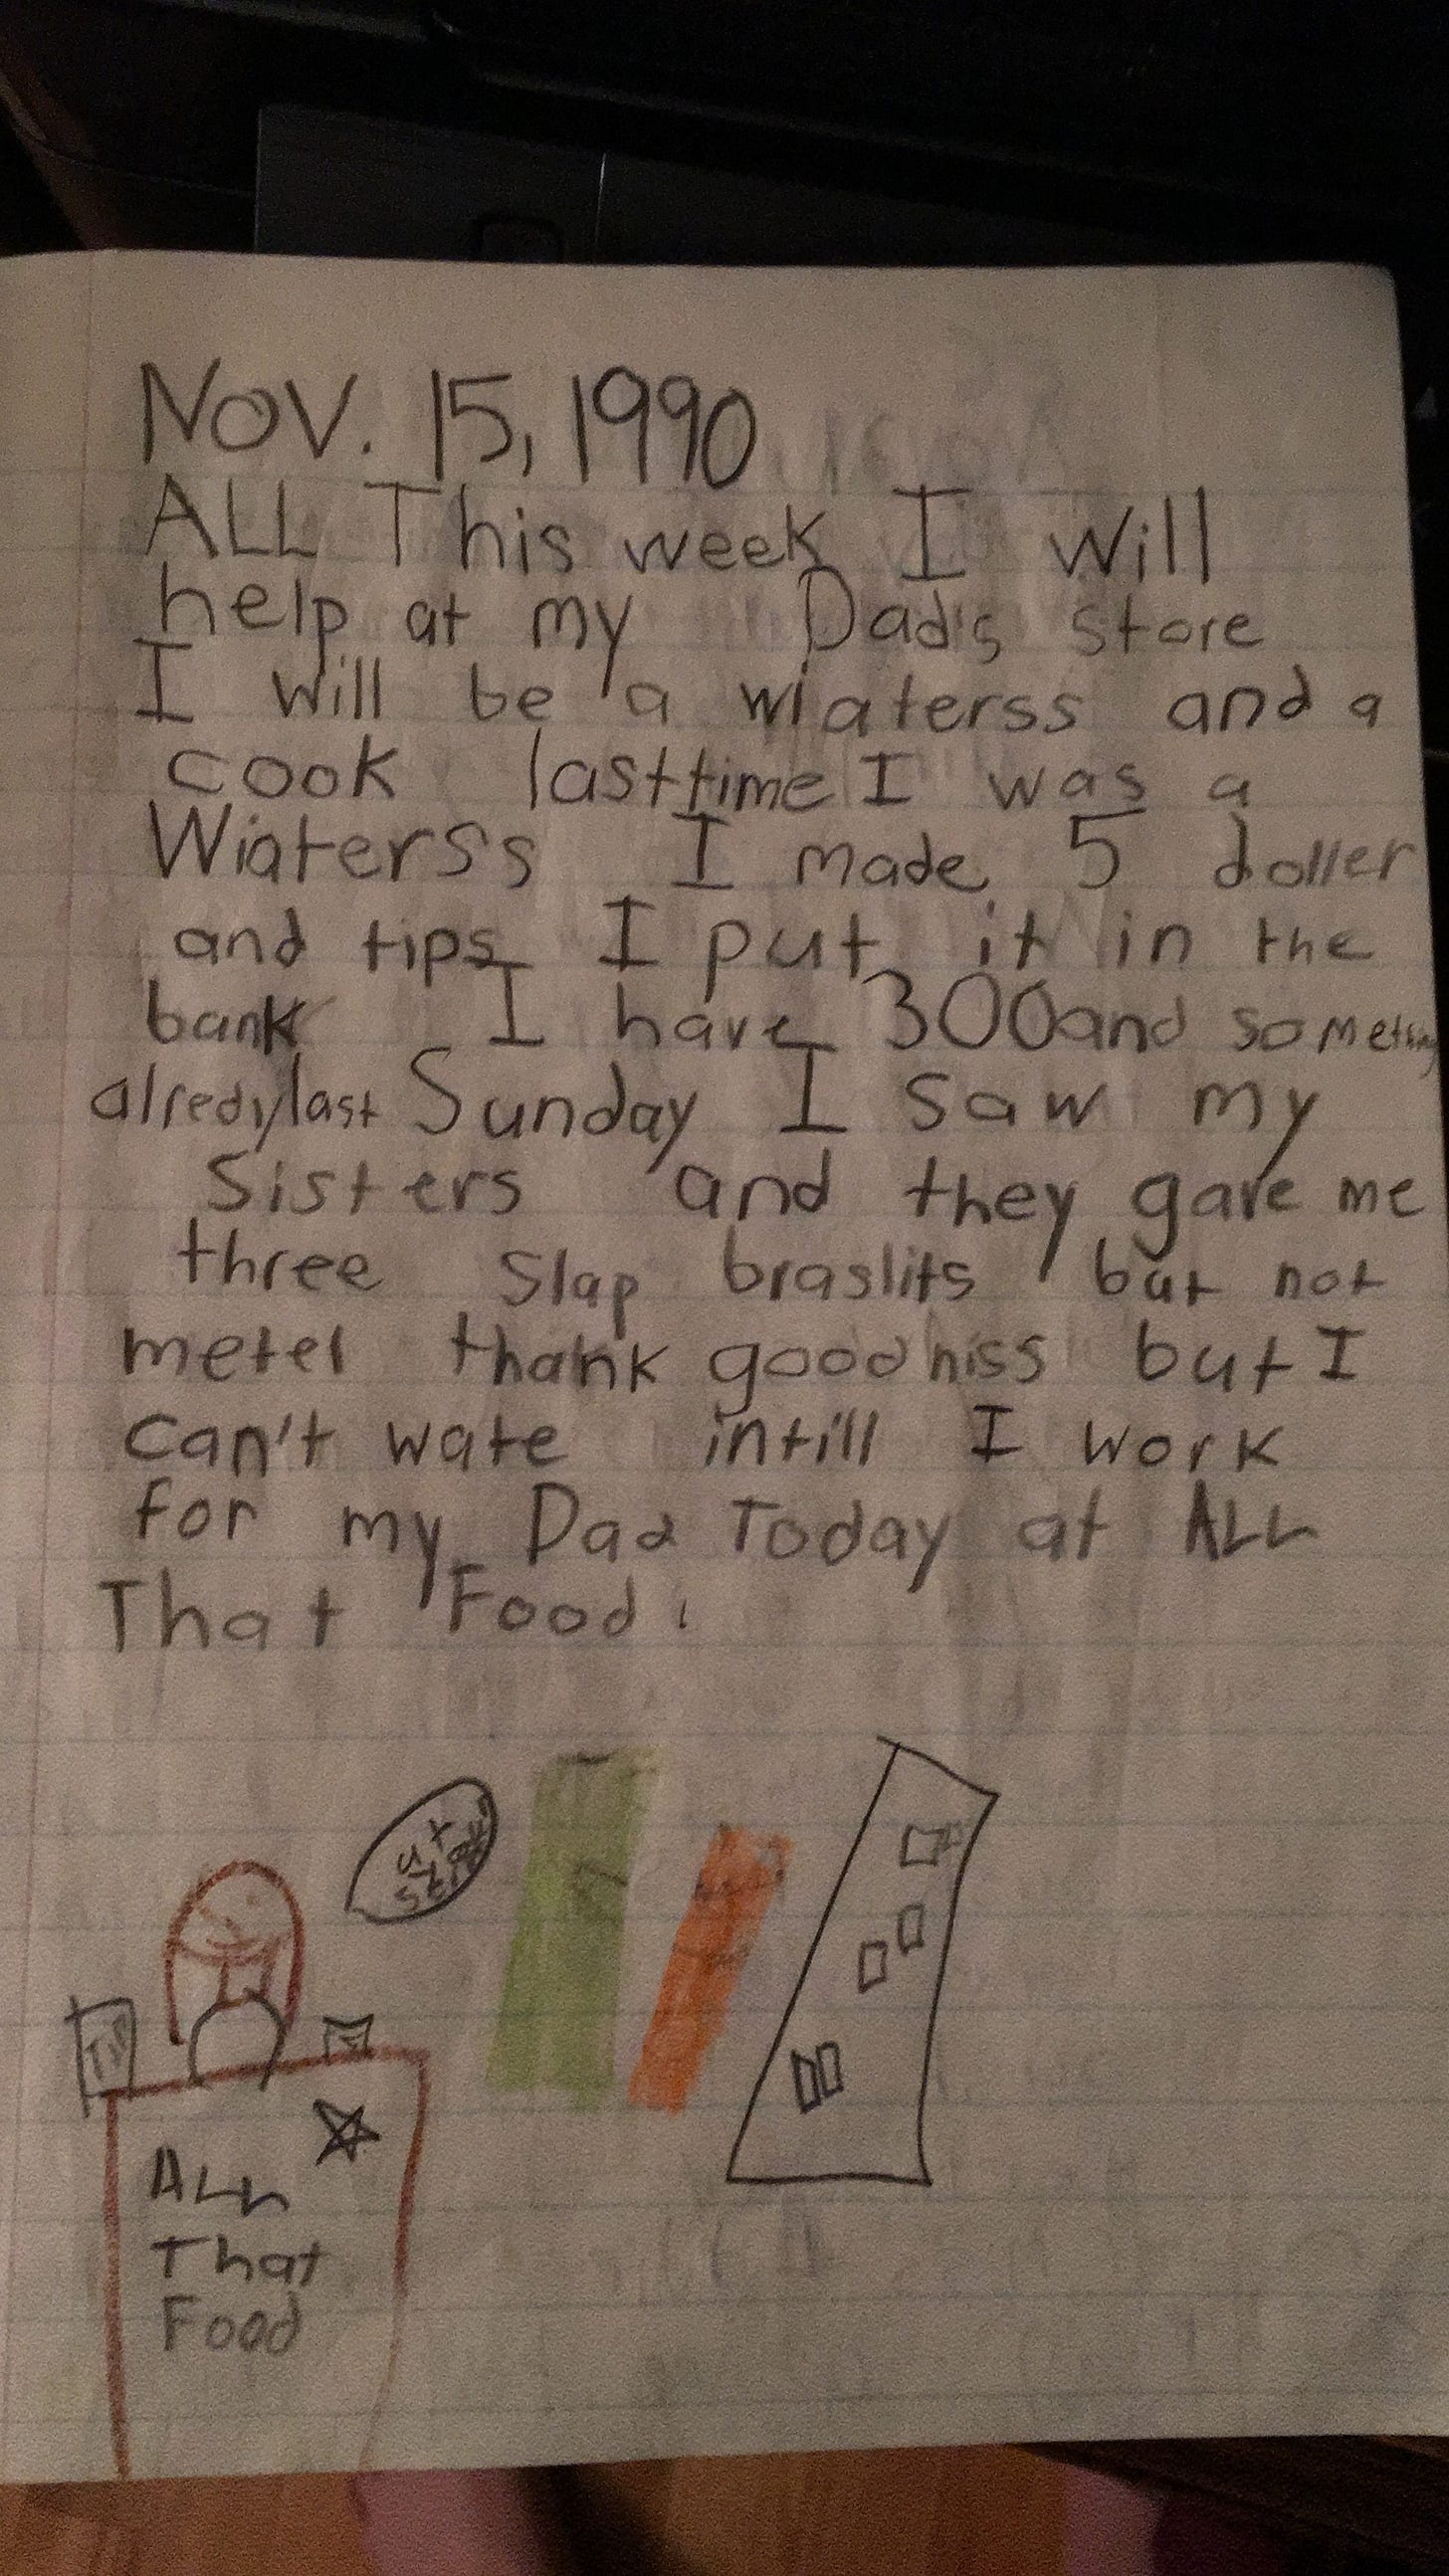 NOV. 15, 1990
ALL This week I will
help at my Dad's store
I will be a wiaterss and a
cook lasttime I was a
Wiaterss I made 5 doller
and tips I put it in the
bank I have 300and something
alredy last Sunday I saw my
Sisters and they gave me
three Slap braslits but not
metel thank goodniss but I
can't wate intill I work
for my Dad Today at ALL
That Food.
TIP
ALL
That
Food